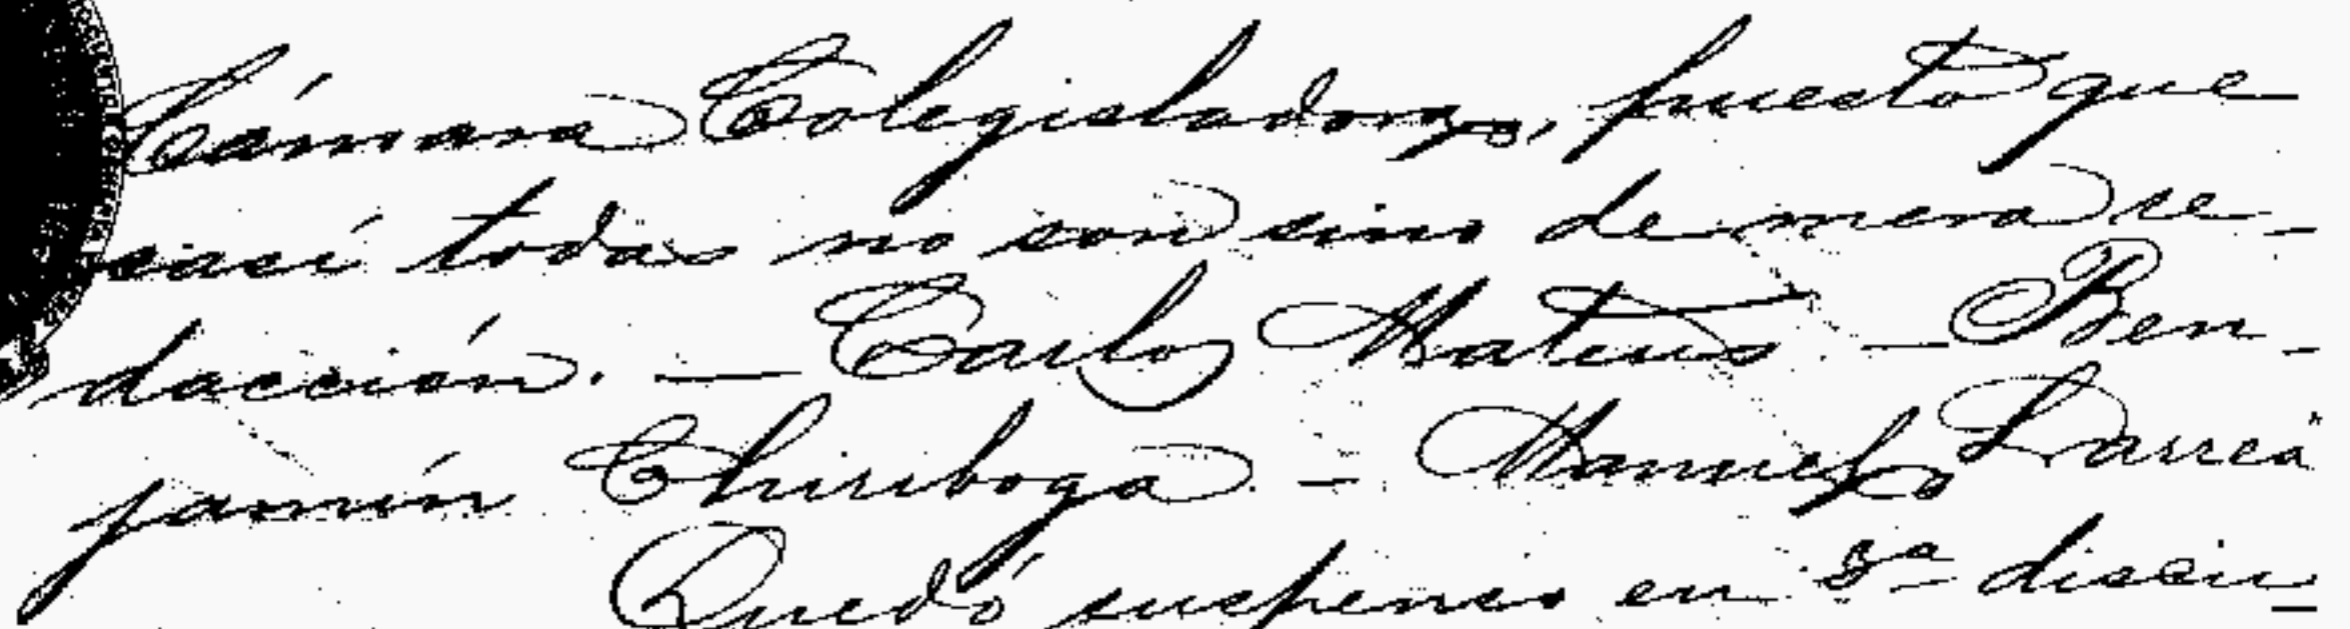 Cámara Colegisladora, puesto que
casi todas no son sino de mera re-
dacción. — Carlos Mateus — Ben-
jamín Chiriboga. — Manuel Larrea
Quedó suspenso en 3ª discu-